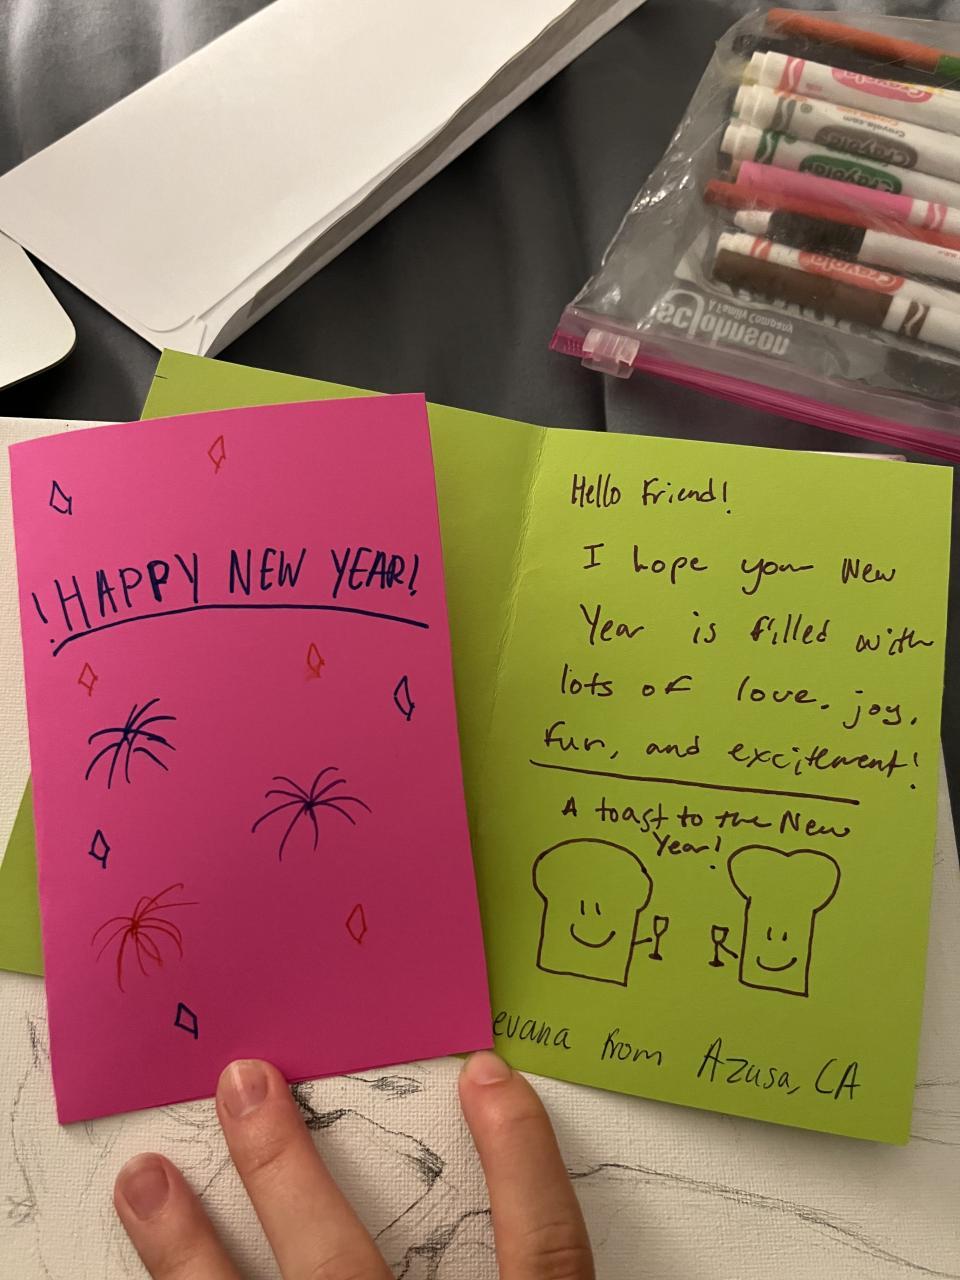 !HAPPY NEW YEAR!
Hello Friend!
I hope your New
Year is filled with
lots of love, joy,
fun, and excitement!
A toast to the New
Year!
evana from Azusa, CA
Crayola
Crayola.com
Crayola
Crayola
Crayola
SC Johnson
A Family Company